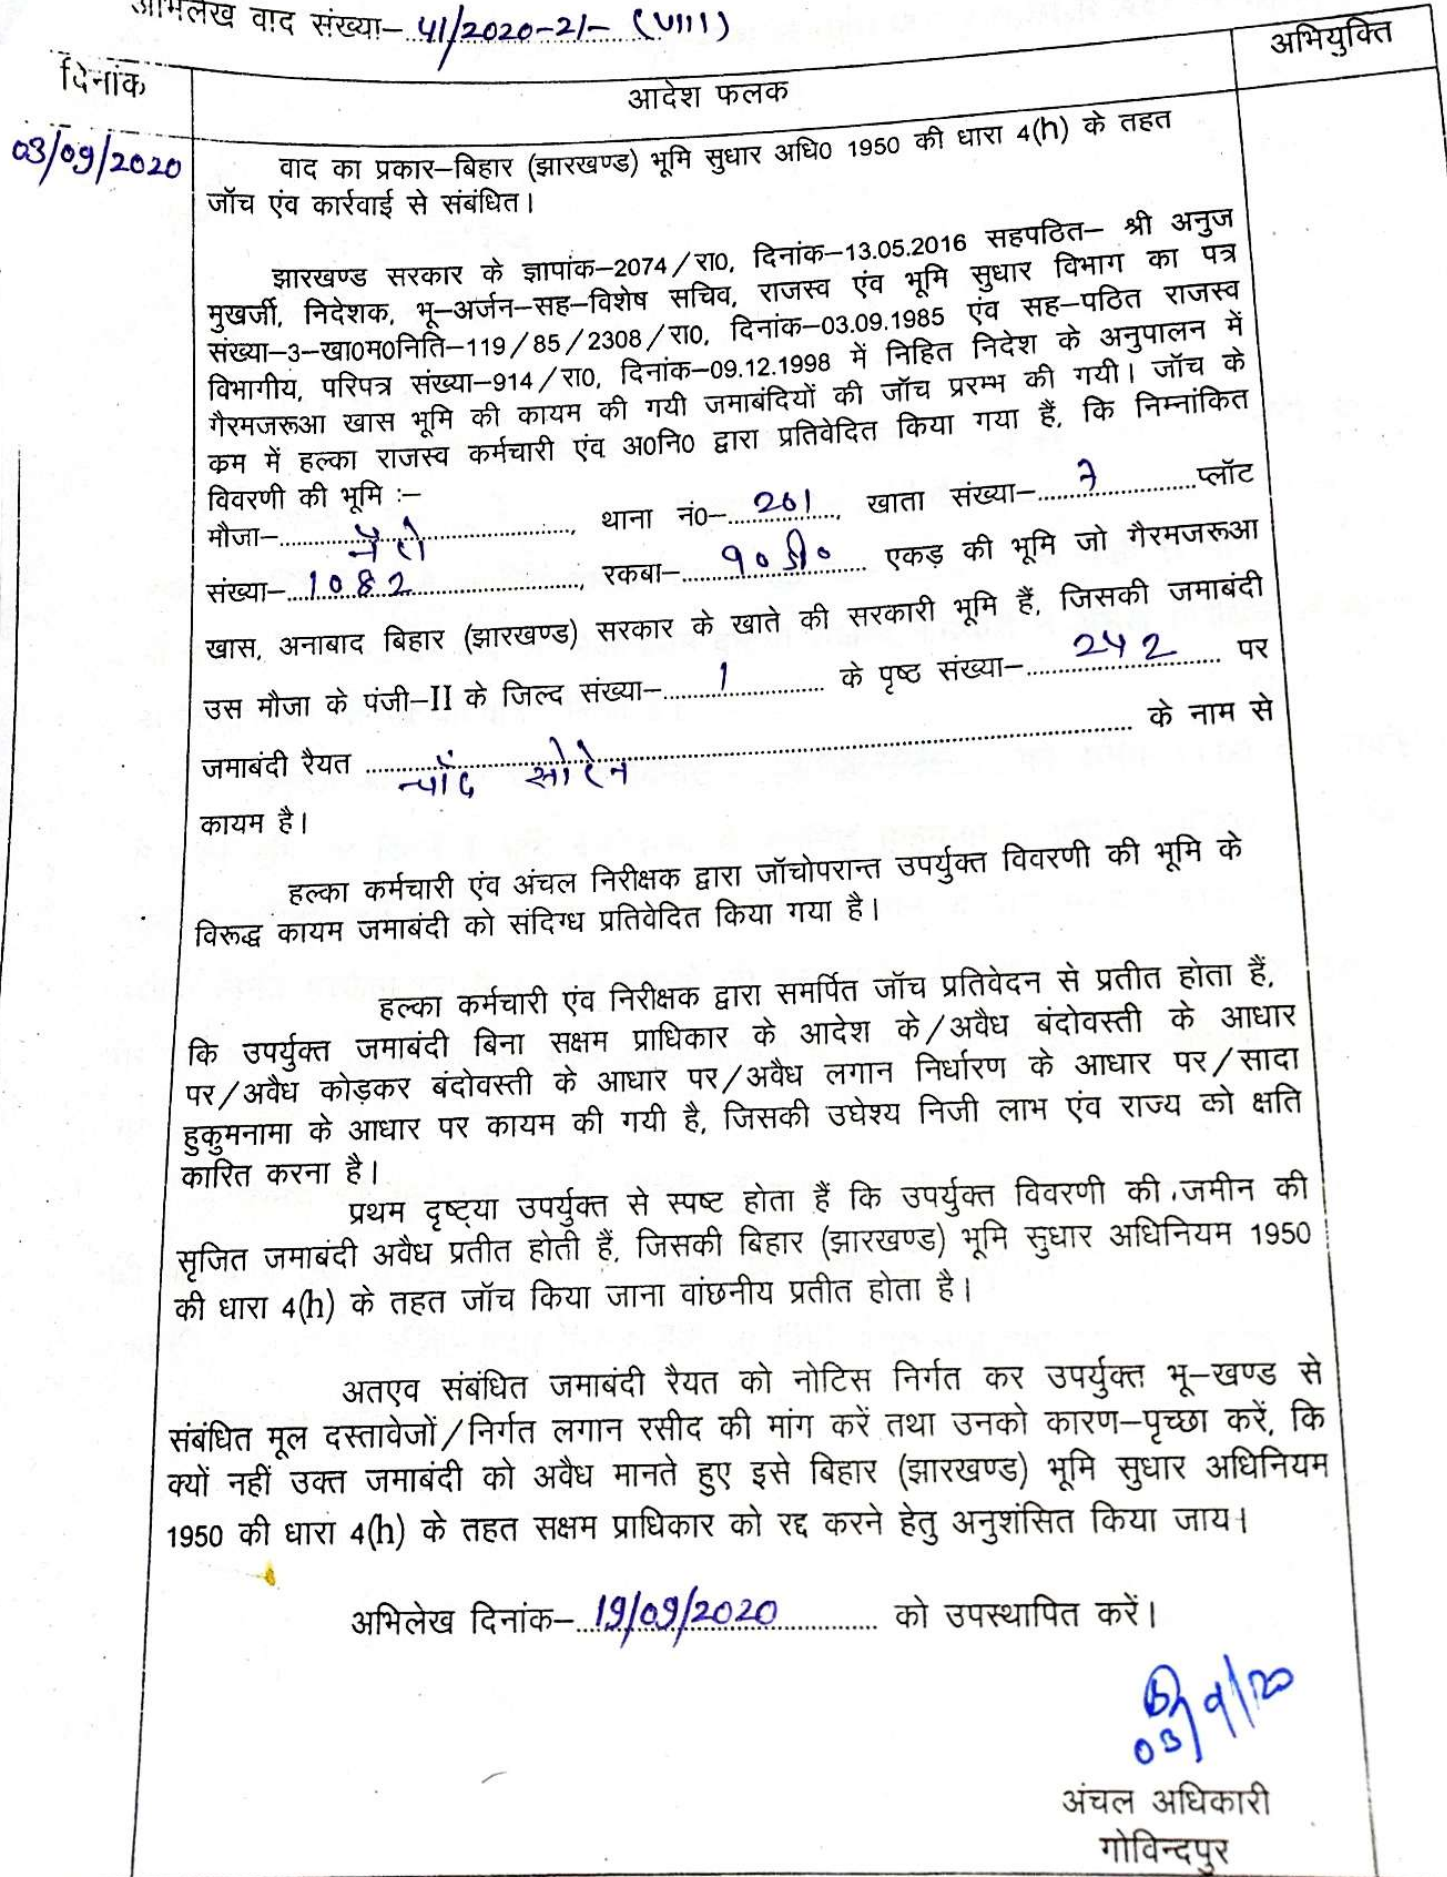 अभिलेख वाद संख्या– 41/2020-21- (VIII)
दिनांक
आदेश फलक
अभियुक्ति
03/09/2020
वाद का प्रकार–बिहार (झारखण्ड) भूमि सुधार अधि0 1950 की धारा 4(h) के तहत
जॉच एंव कार्रवाई से संबंधित।
झारखण्ड सरकार के ज्ञापांक–2074/रा0, दिनांक–13.05.2016 सहपठित– श्री अनुज
मुखर्जी, निदेशक, भू–अर्जन–सह–विशेष सचिव, राजस्व एंव भूमि सुधार विभाग का पत्र
संख्या–3–खा0म0निति–119/85/2308/रा0, दिनांक–03.09.1985 एंव सह–पठित राजस्व
विभागीय, परिपत्र संख्या–914/रा0, दिनांक–09.12.1998 में निहित निदेश के अनुपालन में
गैरमजरूआ खास भूमि की कायम की गयी जमाबंदियों की जॉच प्ररम्भ की गयी। जॉच के
कम में हल्का राजस्व कर्मचारी एंव अ0नि0 द्वारा प्रतिवेदित किया गया हैं, कि निम्नांकित
विवरणी की भूमि :–
मौजा–........, थाना नं0– 201, खाता संख्या– 7 प्लॉट
संख्या– 1082, रकबा– 90 डी0 एकड़ की भूमि जो गैरमजरूआ
खास, अनाबाद बिहार (झारखण्ड) सरकार के खाते की सरकारी भूमि हैं, जिसकी जमाबंदी
उस मौजा के पंजी–II के जिल्द संख्या– 1 के पृष्ठ संख्या– 242 पर
जमाबंदी रैयत चाँद सोरेन के नाम से
कायम है।
हल्का कर्मचारी एंव अंचल निरीक्षक द्वारा जॉचोपरान्त उपर्युक्त विवरणी की भूमि के
विरूद्ध कायम जमाबंदी को संदिग्ध प्रतिवेदित किया गया है।
हल्का कर्मचारी एंव निरीक्षक द्वारा समर्पित जॉच प्रतिवेदन से प्रतीत होता हैं,
कि उपर्युक्त जमाबंदी बिना सक्षम प्राधिकार के आदेश के/अवैध बंदोवस्ती के आधार
पर/अवैध कोड़कर बंदोवस्ती के आधार पर/अवैध लगान निर्धारण के आधार पर/सादा
हुकुमनामा के आधार पर कायम की गयी है, जिसकी उघेश्य निजी लाभ एंव राज्य को क्षति
कारित करना है।
प्रथम दृष्टया उपर्युक्त से स्पष्ट होता हैं कि उपर्युक्त विवरणी की जमीन की
सृजित जमाबंदी अवैध प्रतीत होती हैं, जिसकी बिहार (झारखण्ड) भूमि सुधार अधिनियम 1950
की धारा 4(h) के तहत जॉच किया जाना वांछनीय प्रतीत होता है।
अतएव संबंधित जमाबंदी रैयत को नोटिस निर्गत कर उपर्युक्त भू–खण्ड से
संबंधित मूल दस्तावेजों/निर्गत लगान रसीद की मांग करें तथा उनको कारण–पृच्छा करें, कि
क्यों नहीं उक्त जमाबंदी को अवैध मानते हुए इसे बिहार (झारखण्ड) भूमि सुधार अधिनियम
1950 की धारा 4(h) के तहत सक्षम प्राधिकार को रद्द करने हेतु अनुशंसित किया जाय।
अभिलेख दिनांक– 19/09/2020 को उपस्थापित करें।
03/9/20
अंचल अधिकारी
गोविन्दपुर